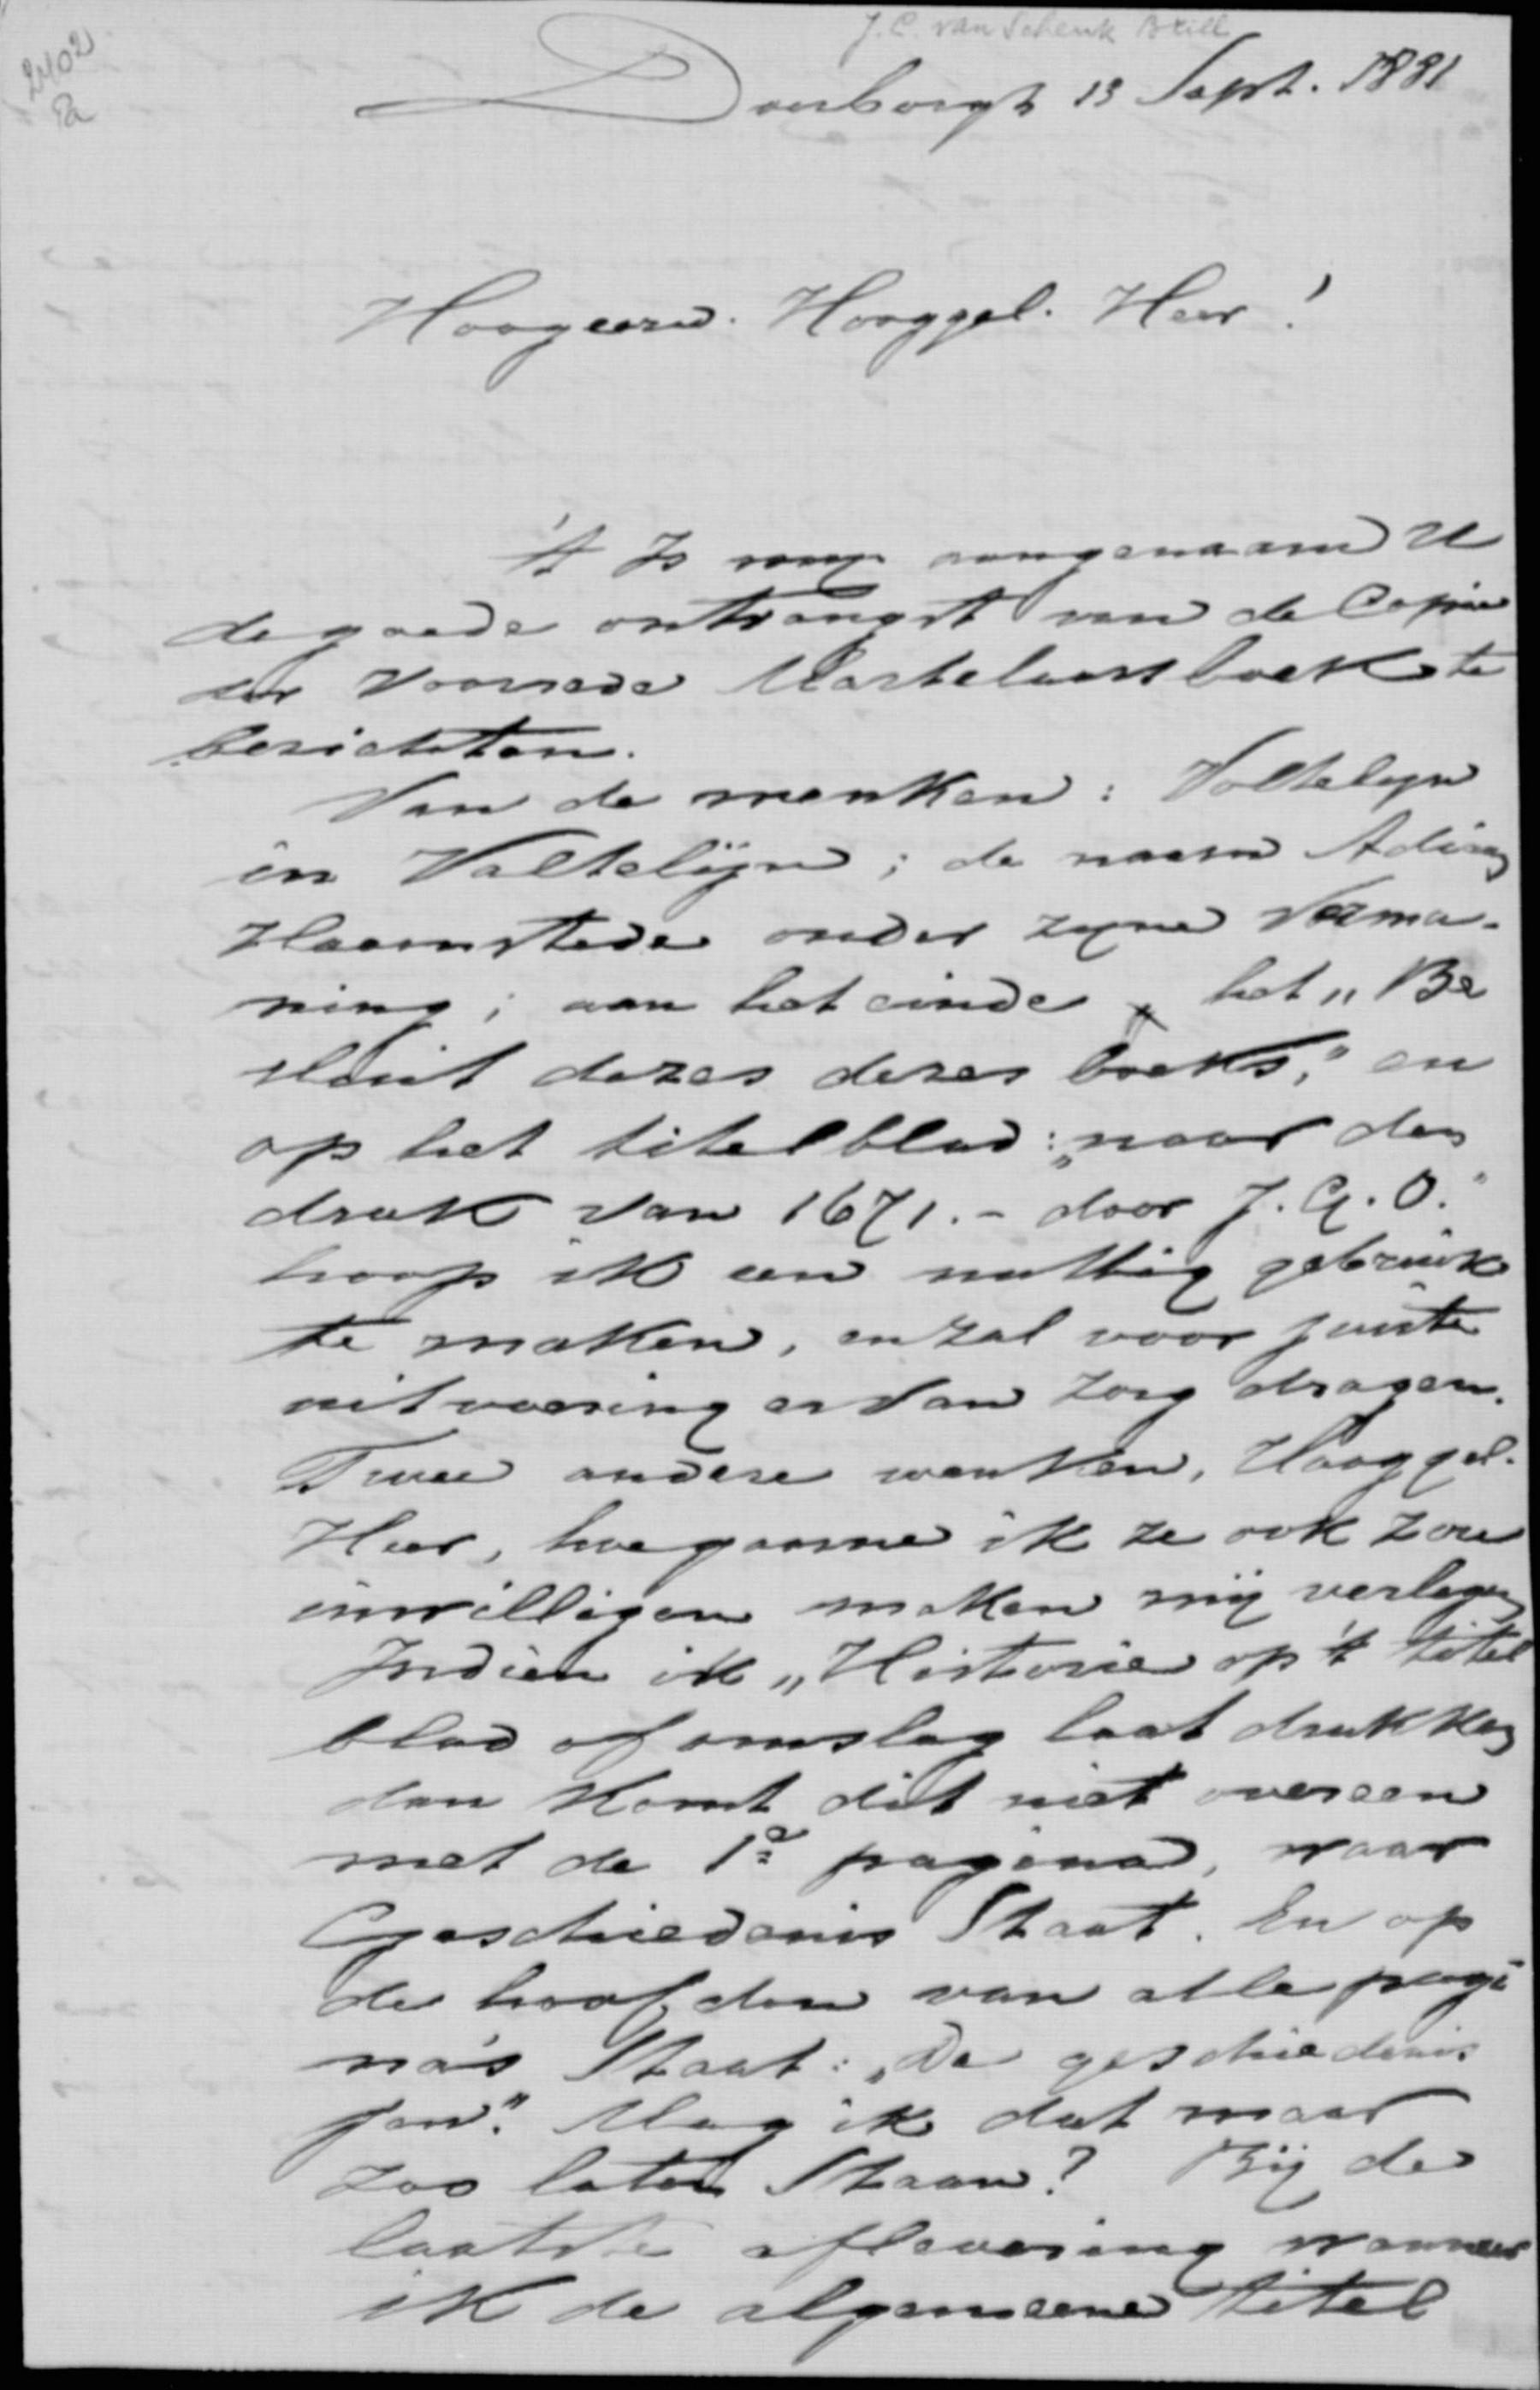 J. C. van Schenk Brill
2402
Doesborgh 13 Sept. 1881
Hoogeerw. Hooggel. Heer!
't Is mij aangenaam U
de goede ontvangst van de Copie
der Voorrede Martelaarsboek te
berichten.
Van de wenken: Voltelijn
in Valtelijn; de naam Adr.
Haemstede onder zijne Verma-
ning; aan het einde het „Be
sluit dezes deses boeks," en
op het titelblad: „naar den
druk van 1671. - door J. G. O."
hoop ik een nuttig gebruik
te maken, en zal voor juiste
uitvoering ervan zorg dragen.
Twee andere wenken, Hooggel.
Heer, hoe gaarne ik ze ook zou
inwilligen maken mij verlegen
Indien ik „Historie op 't titel
blad of omslag laat drukken
dan komt dit niet overeen
met de 1e pagina, waar
Geschiedenis Staat. En op
de hoofden van alle pagi
na's Staat: „De geschiedenis
sen." Mag ik dat maar
zoo laten Staan? Bij de
laatste aflevering wanneer
ik de algemeene titel